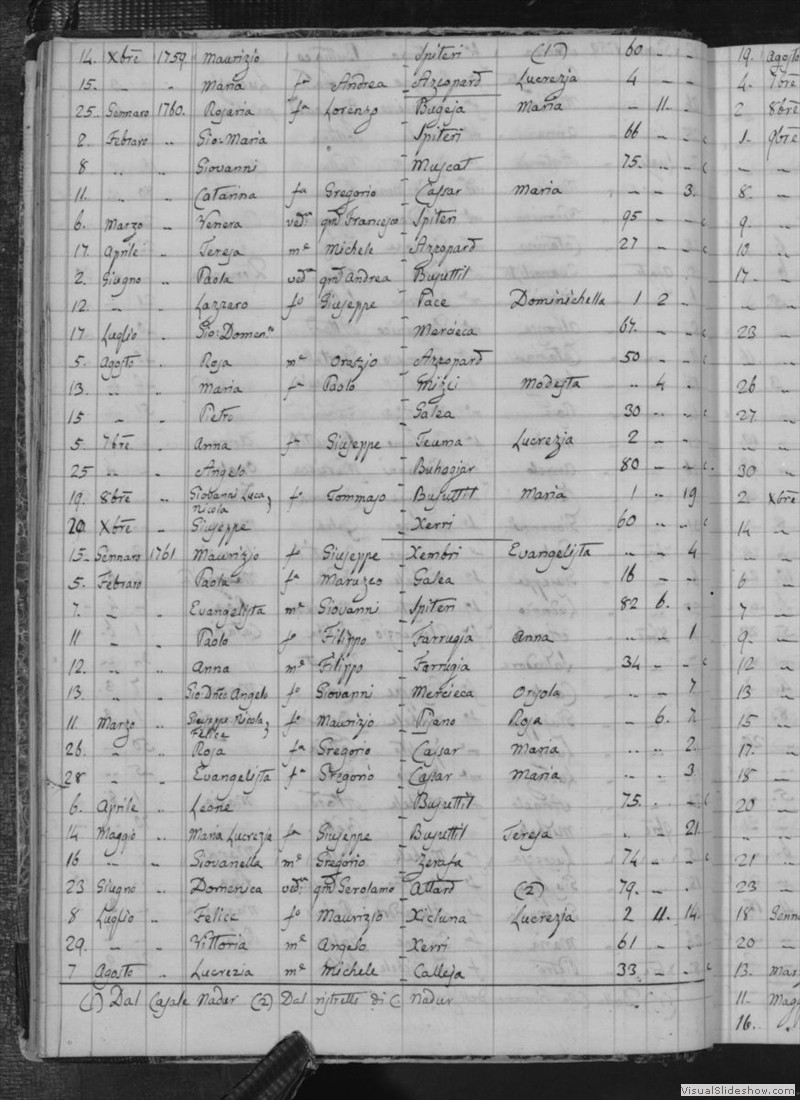 14. Xbre 1759 Maurizio Spiteri (1) 60 - -
15. " " Maria fa Andrea Azzopard Lucrezia 4 - -
25. Gennaro 1760. Rosaria fa Lorenzo Bugeja Maria - 11. -
2. Febraro " Gio: Maria Spiteri 66 - - c
8 " " Giovanni Muscat 75. - - c
11. " " Catarina fa Gregorio Cassar Maria - - 3.
6. Marzo " Venera veda qm Francesco Spiteri 95 - - c
17. Aprile " Teresa me Michele Azzopard 27 - - c
2. Giugno " Paola veda qm Andrea Busuttil
12. " " Lazzaro fo Giuseppe Pace Dominichella 1 2 -
17 Luglio " Gio: Domen.co Mercieca 67. - - c
5. Agosto " Rosa me Orazio Azzopard 50 - - c
13. " " Maria fa Paolo Grizei Modesta " 4 -
15 " " Pietro Galea 30 - - c
5. 7bre " Anna fa Giuseppe Teuma Lucrezia 2 - -
25 " " Angelo Buhagiar 80 - - c
19. 8bre " Giovanni Luca Nicola fo Tommaso Busuttil Maria 1 " 19
20. Xbre " Giuseppe Xerri 60 - - c
15- Gennaro 1761 Maurizio fo Giuseppe Xembri Evangelista - - 4
5. Febraro Paola fa Maruzeo Galea 16 - -
7. " Evangelista me Giovanni Spiteri 82 6. .
11 " Paolo fo Filippo Farrugia Anna " - 1
12. " " Anna me Filippo Farrugia 34 - - c
13. " " Gio Dn̄co Angelo fo Giovanni Mercieca Orsola - - 7
11. Marzo " Giuseppe Nicola Felice fo Maurizio Pisano Rosa - 6. 7.
26. " " Rosa fa Gregorio Cassar Maria " . 2.
28 " " Evangelista fa Gregorio Cassar Maria " . 3
6. Aprile " Leone Busuttil 75. . - c
14 Maggio " Maria Lucrezia fa Giuseppe Busuttil Teresa . - 21.
16 " " Giovanella me Gregorio Zerafa 74 - - c
23 Giugno " Domenica veda qm Gerolamo Attard (2) 79. - .
8 Luglio " Felice fo Maurizio Xicluna Lucrezia 2 11. 14.
29. " " Vittoria me Angelo Xerri 61 - -
7 Agosto " Lucrezia me Michele Calleja 33 - - c
(1) Dal Casale Nadur (2) Dal ristretto di C. Nadur
19. Agosto
4. 7bre
2 8bre
1. 9bre
8. -
9. -
10 -
17. -
23 -
26 -
27. -
30 -
2. Xbre
14 -
6 -
7 -
9. -
12 -
13 -
15 -
17. -
18 -
20 -
21 -
23 -
18 Genn
20 -
13. Mar
11. Magg
16.
VisualSlideshow.com